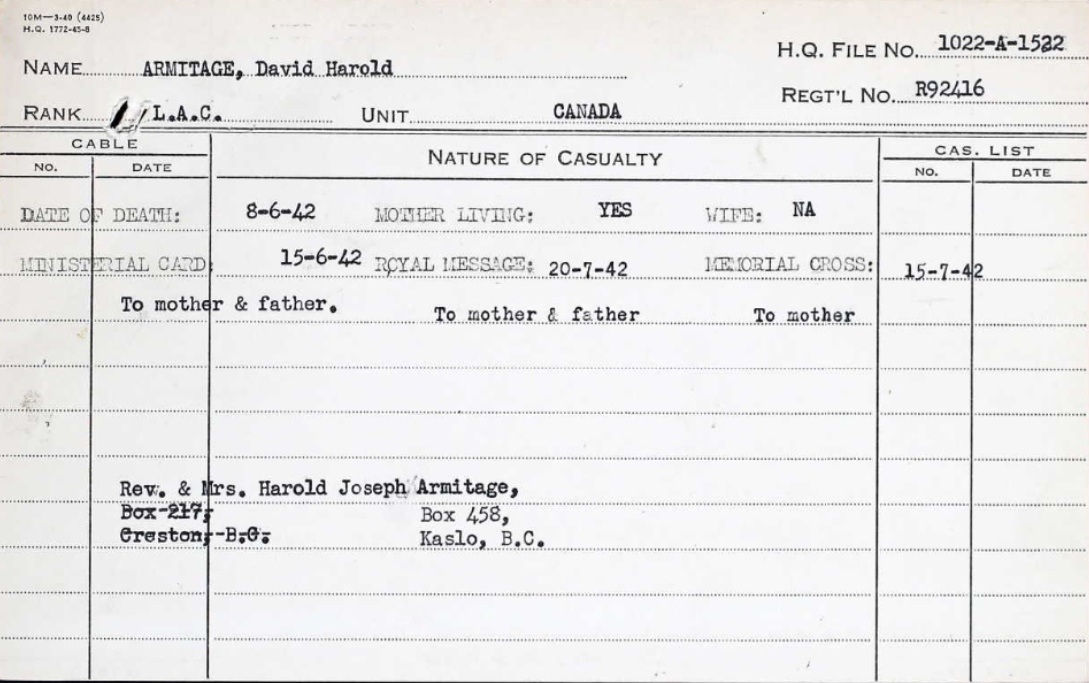 10M—3-40 (4425)
H.Q. 1772-45-8
H.Q. FILE No. 1022-A-1522
NAME ARMITAGE, David Harold
REGT'L No. R92416
RANK L.A.C. UNIT CANADA
CABLE NATURE OF CASUALTY CAS. LIST
NO. DATE NO. DATE
DATE OF DEATH: 8-6-42 MOTHER LIVING: YES WIFE: NA
MINISTERIAL CARD: 15-6-42 ROYAL MESSAGE: 20-7-42 MEMORIAL CROSS: 15-7-42
To mother & father. To mother & father To mother
Rev. & Mrs. Harold Joseph Armitage,
Box 217, Box 458,
Creston, B.C. Kaslo, B.C.